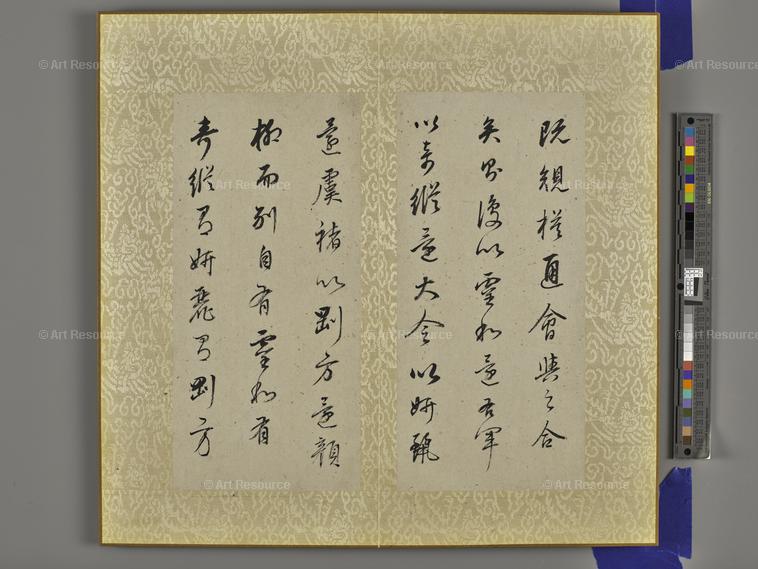 既規模通會與之合
矣然後以靈和還右軍
以奇縱還大令以妍
還虞褚以剛方還顏
柳而別自有靈和有
奇縱有妍麗有剛方
© Art Resource
© Art Resource
© Art Resource
© Art Resource
© Art Resource
© Art Resource
© Art Resource
© Art Resource
© Art Resource
© Art Resource